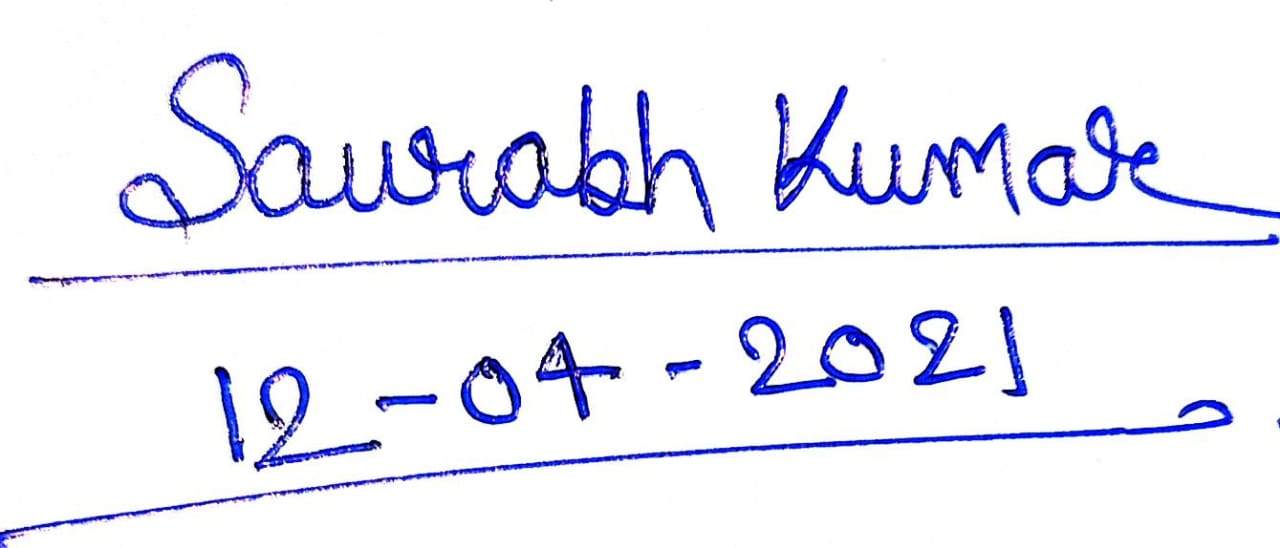 Saurabh Kumar
12-04-2021